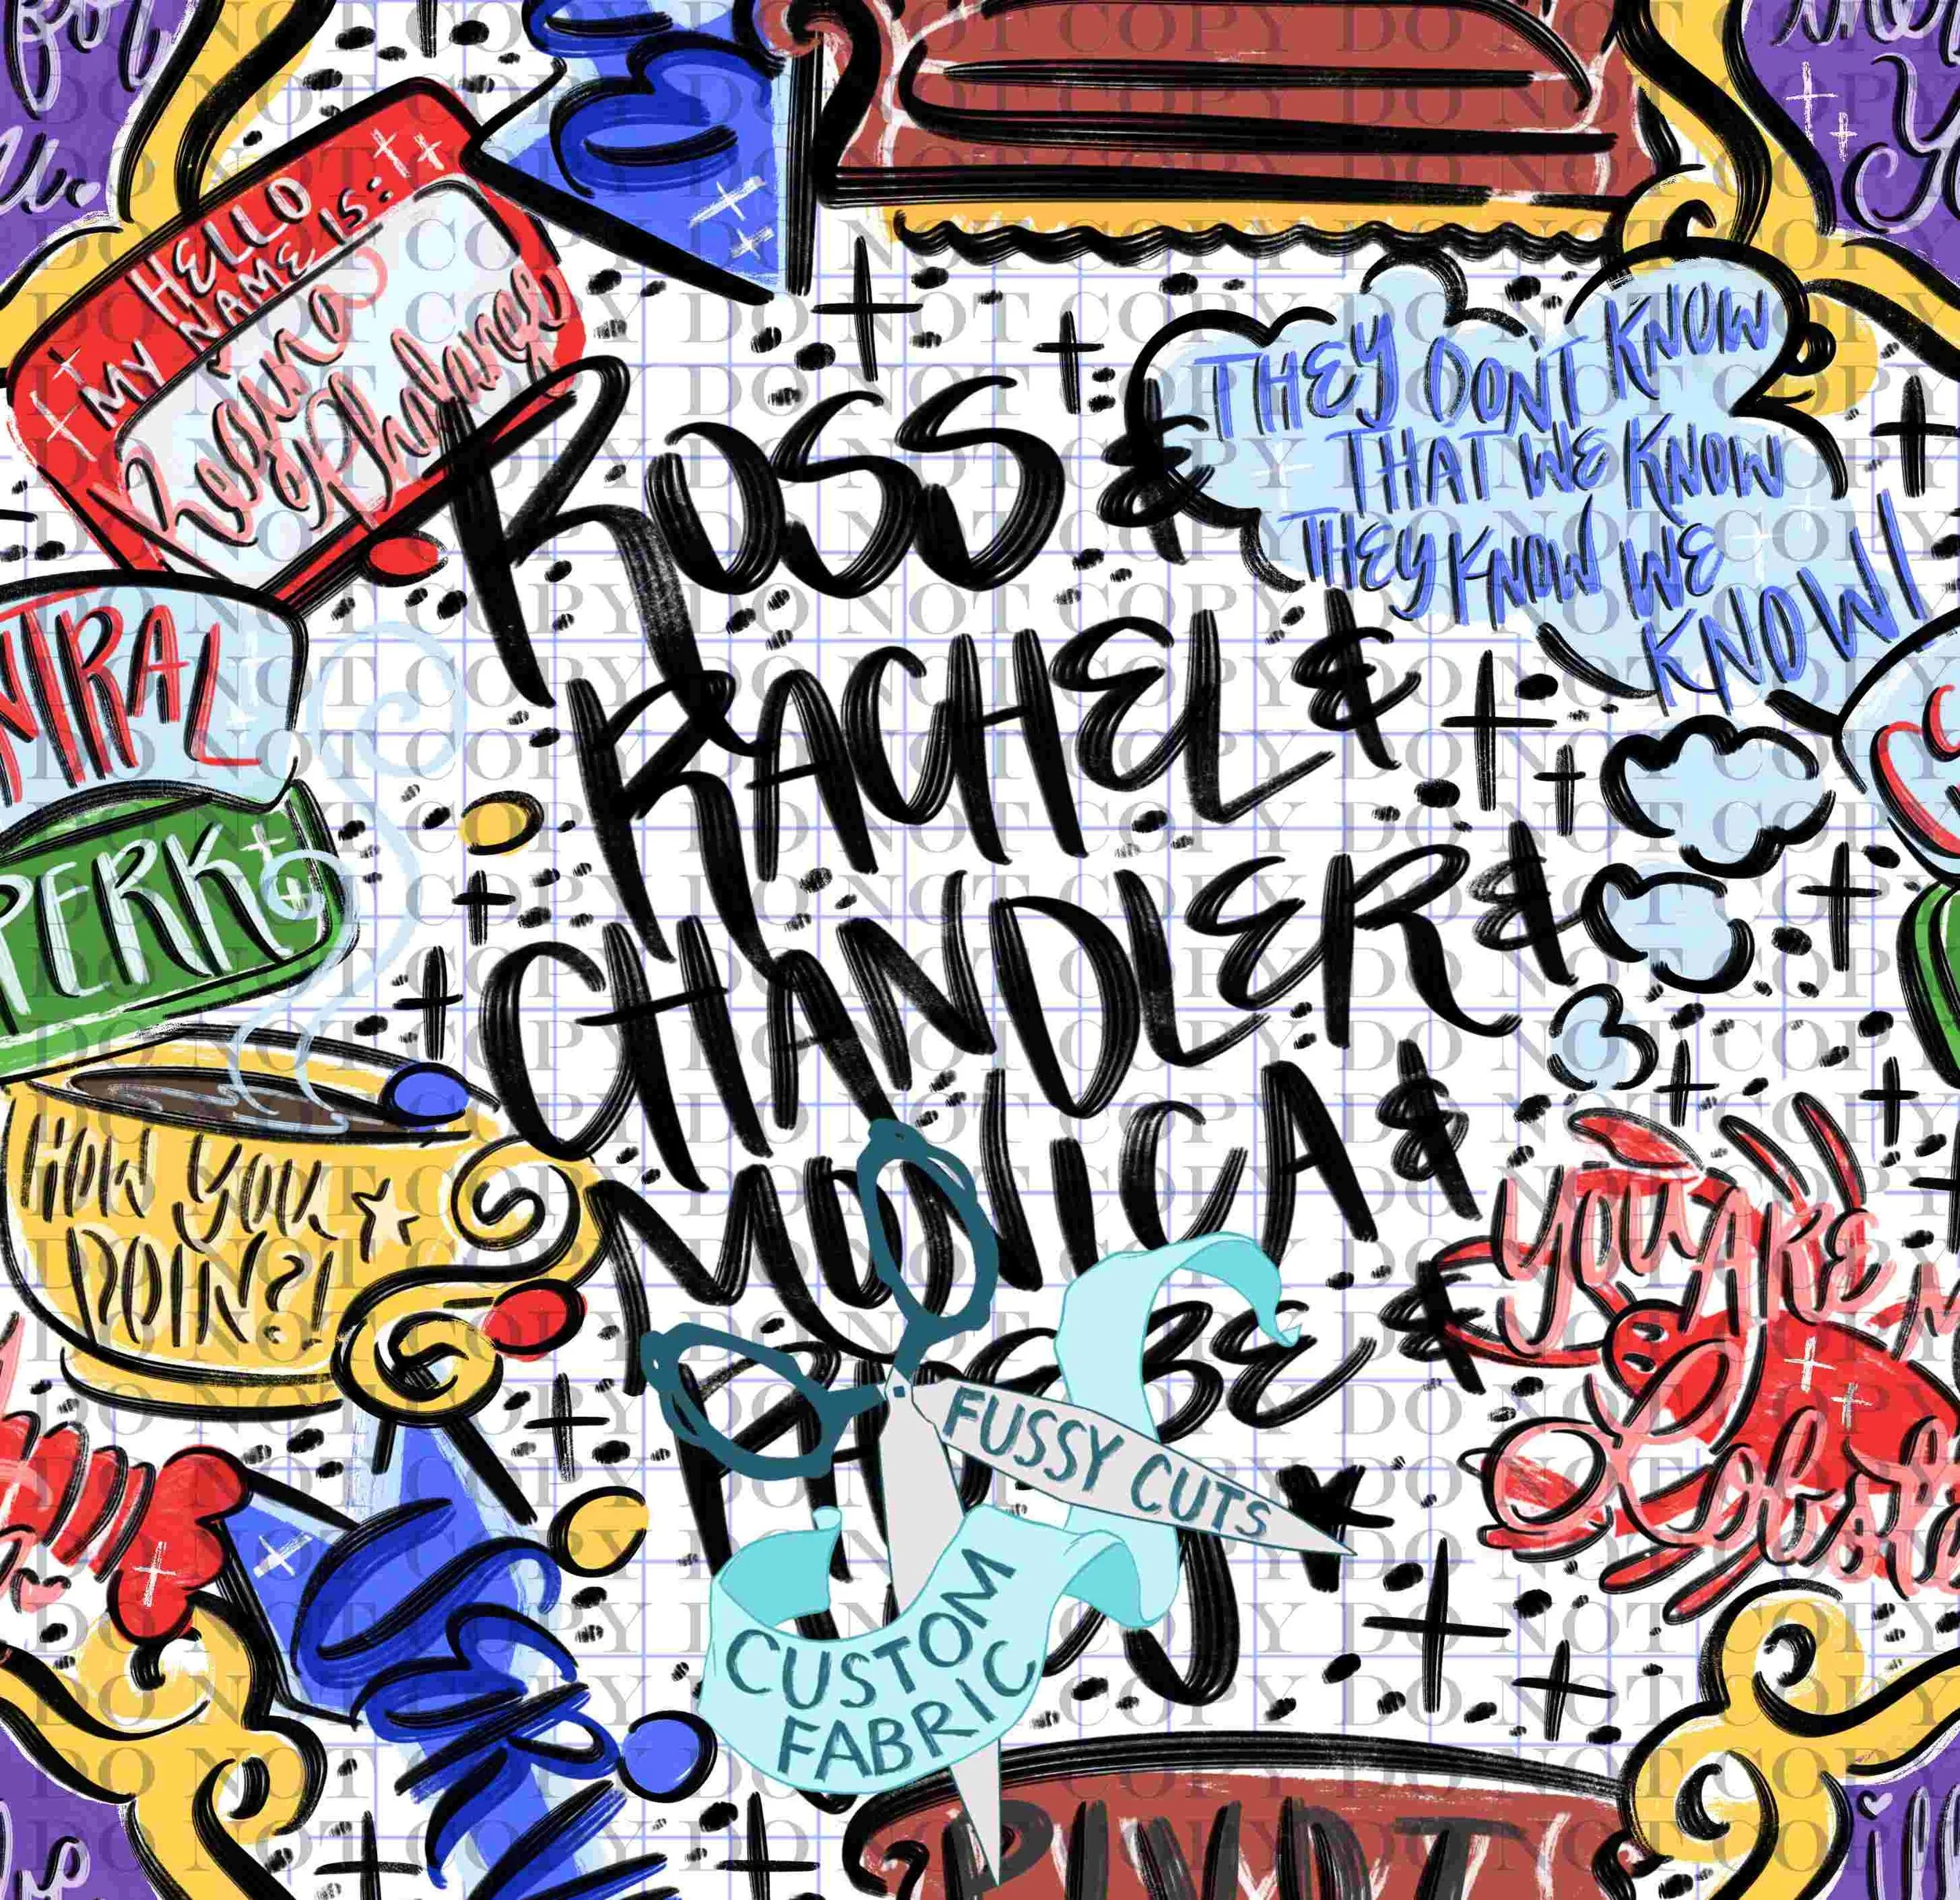 for
HELLO
MY NAME IS:
Regina
Phalange
ROSS &
RACHEL &
CHANDLER &
MONICA &
PHOEBE &
THEY DON'T KNOW
THAT WE KNOW
THEY KNOW WE
KNOW!
NTRAL
PERK
HOW YOU
DOIN?!
YOU ARE
FUSSY CUTS
CUSTOM
FABRIC
PIVOT
DO NOT COPY DO NOT COPY DO NOT COPY